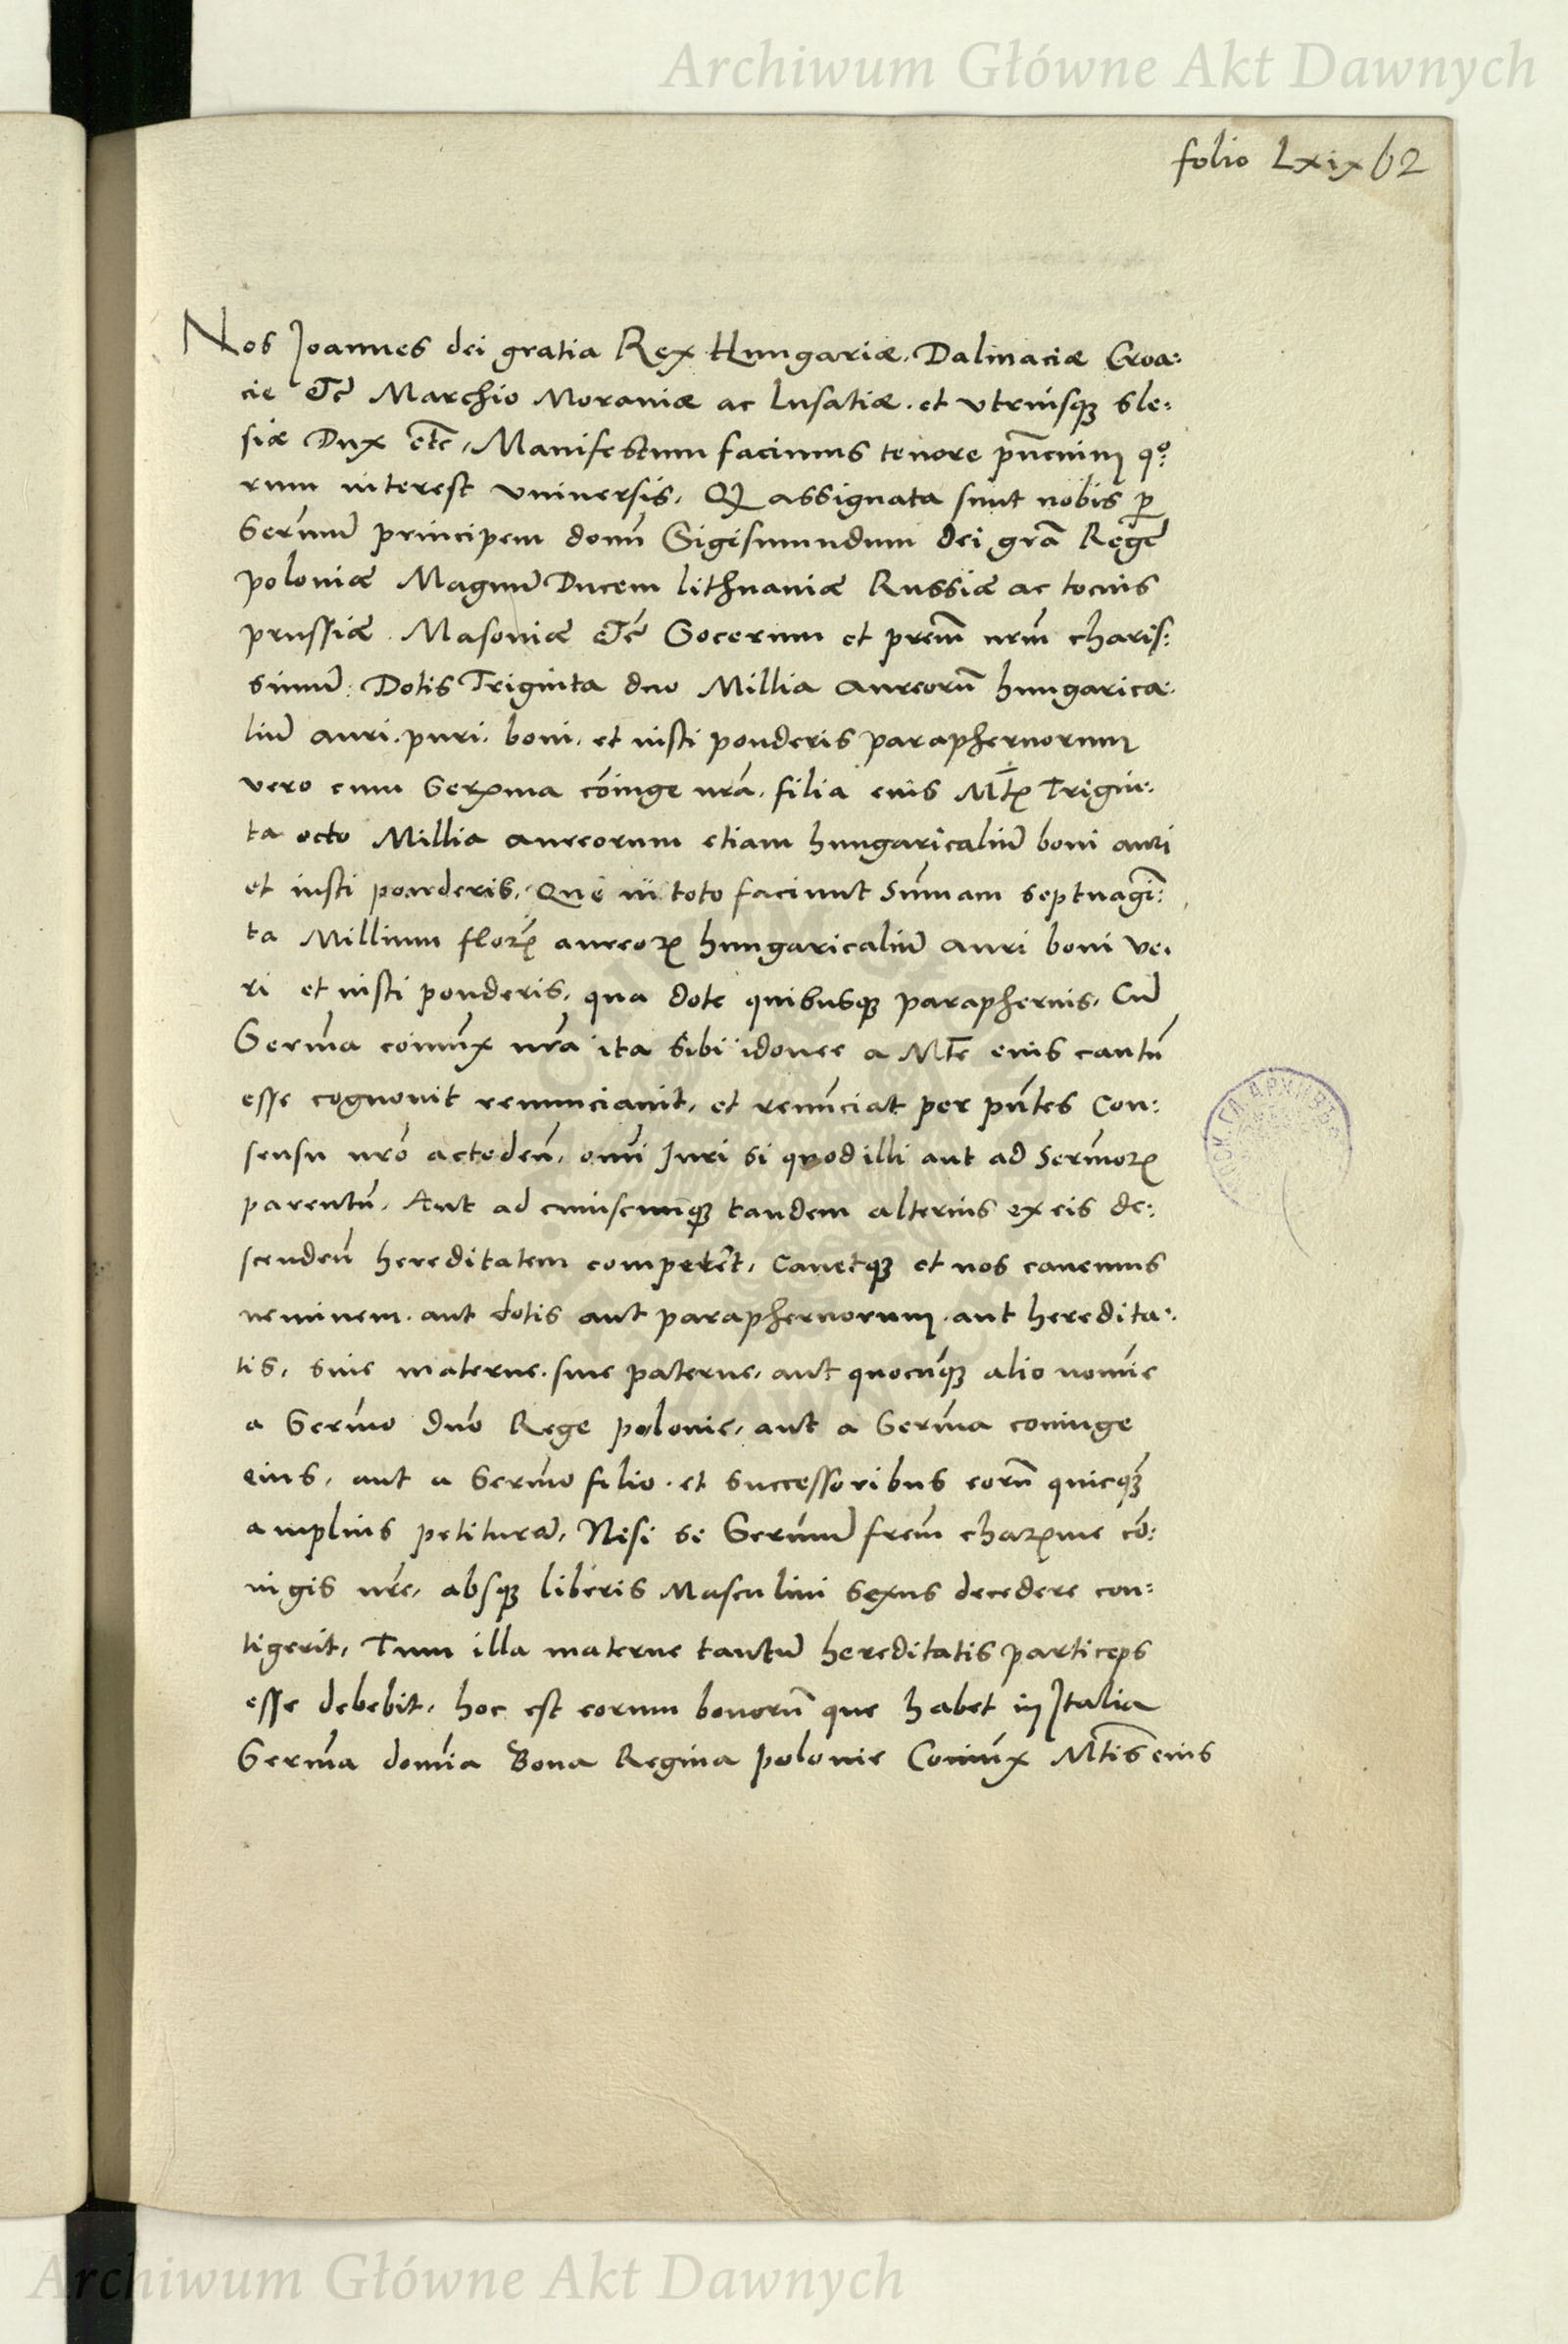 Archiwum Główne Akt Dawnych
folio Lxix 62
Nos Joannes dei gratia Rex Hungariæ, Dalmaciæ Croa:
cie etc̃ Marchio Moraviæ ac Lusatiæ. et vtriusqꝫ Sle:
siæ Dux etc̃, Manifestum facimus tenore pñcium qº:
rum interest vniversis, Qꝫ assignata sunt nobis ꝑ
Serm̃ũ principem domĩ Sigismundum dei grã Regẽ
poloniæ Magnũ Ducem lithuaniæ Russiæ ac tocius
prussiæ. Masoviæ etc̃ Socerum et prem̃ nrm̃ charis:
simũ: Dotis Triginta duo Millia aureorũ hungarica:
liũ auri. puri. boni. et iusti ponderis paraphernorum
vero cum Serꝫma cõiuge nrã. filia eius Mtꝫ Trigin:
ta octo Millia aureorum etiam hungaricaliũ boni auri
et iusti ponderis. Que in toto faciunt Sum̃am septuagĩ:
ta Millium florꝫ aureorꝫ hungaricaliũ auri boni ve:
ri et iusti ponderis, qua dote quibusqꝫ paraphernis. Cũ
Serm̃a coniũx nrã ita sibi idonee a Mtẽ eius cautũ
esse cognovit renunciavit, et renũciat per pñtes Con:
sensu nrõ accedeñ, omĩ Juri si quod illi aut ad Serm̃orꝫ
parentũ, Aut ad cuiuscumqꝫ tandem alterius ex eis de:
scendeñ hereditatem competẽt, Cavetqꝫ et nos cavemus
neminem. aut dotis aut paraphernorum. aut heredita:
tis, sive materne. sive paterne, aut quocũqꝫ alio nomĩe
a Serm̃o dnõ Rege polonie, aut a Serm̃a coniuge
eius, aut a Serm̃o filio. et successoribus eorũ quicqꝫ
amplius petiturã, Nisi si Serm̃ũ frem̃ charꝫme cõ:
iugis nrẽ, absqꝫ liberis Masculini sexus decedere con:
tigerit, Tum illa materne tantũ hereditatis particeps
esse debebit, hoc est eorum bonorũ que habet in Italia
Serm̃a domĩa Bona Regina polonie Coniũx Mtis̃ eius
Archiwum Główne Akt Dawnych